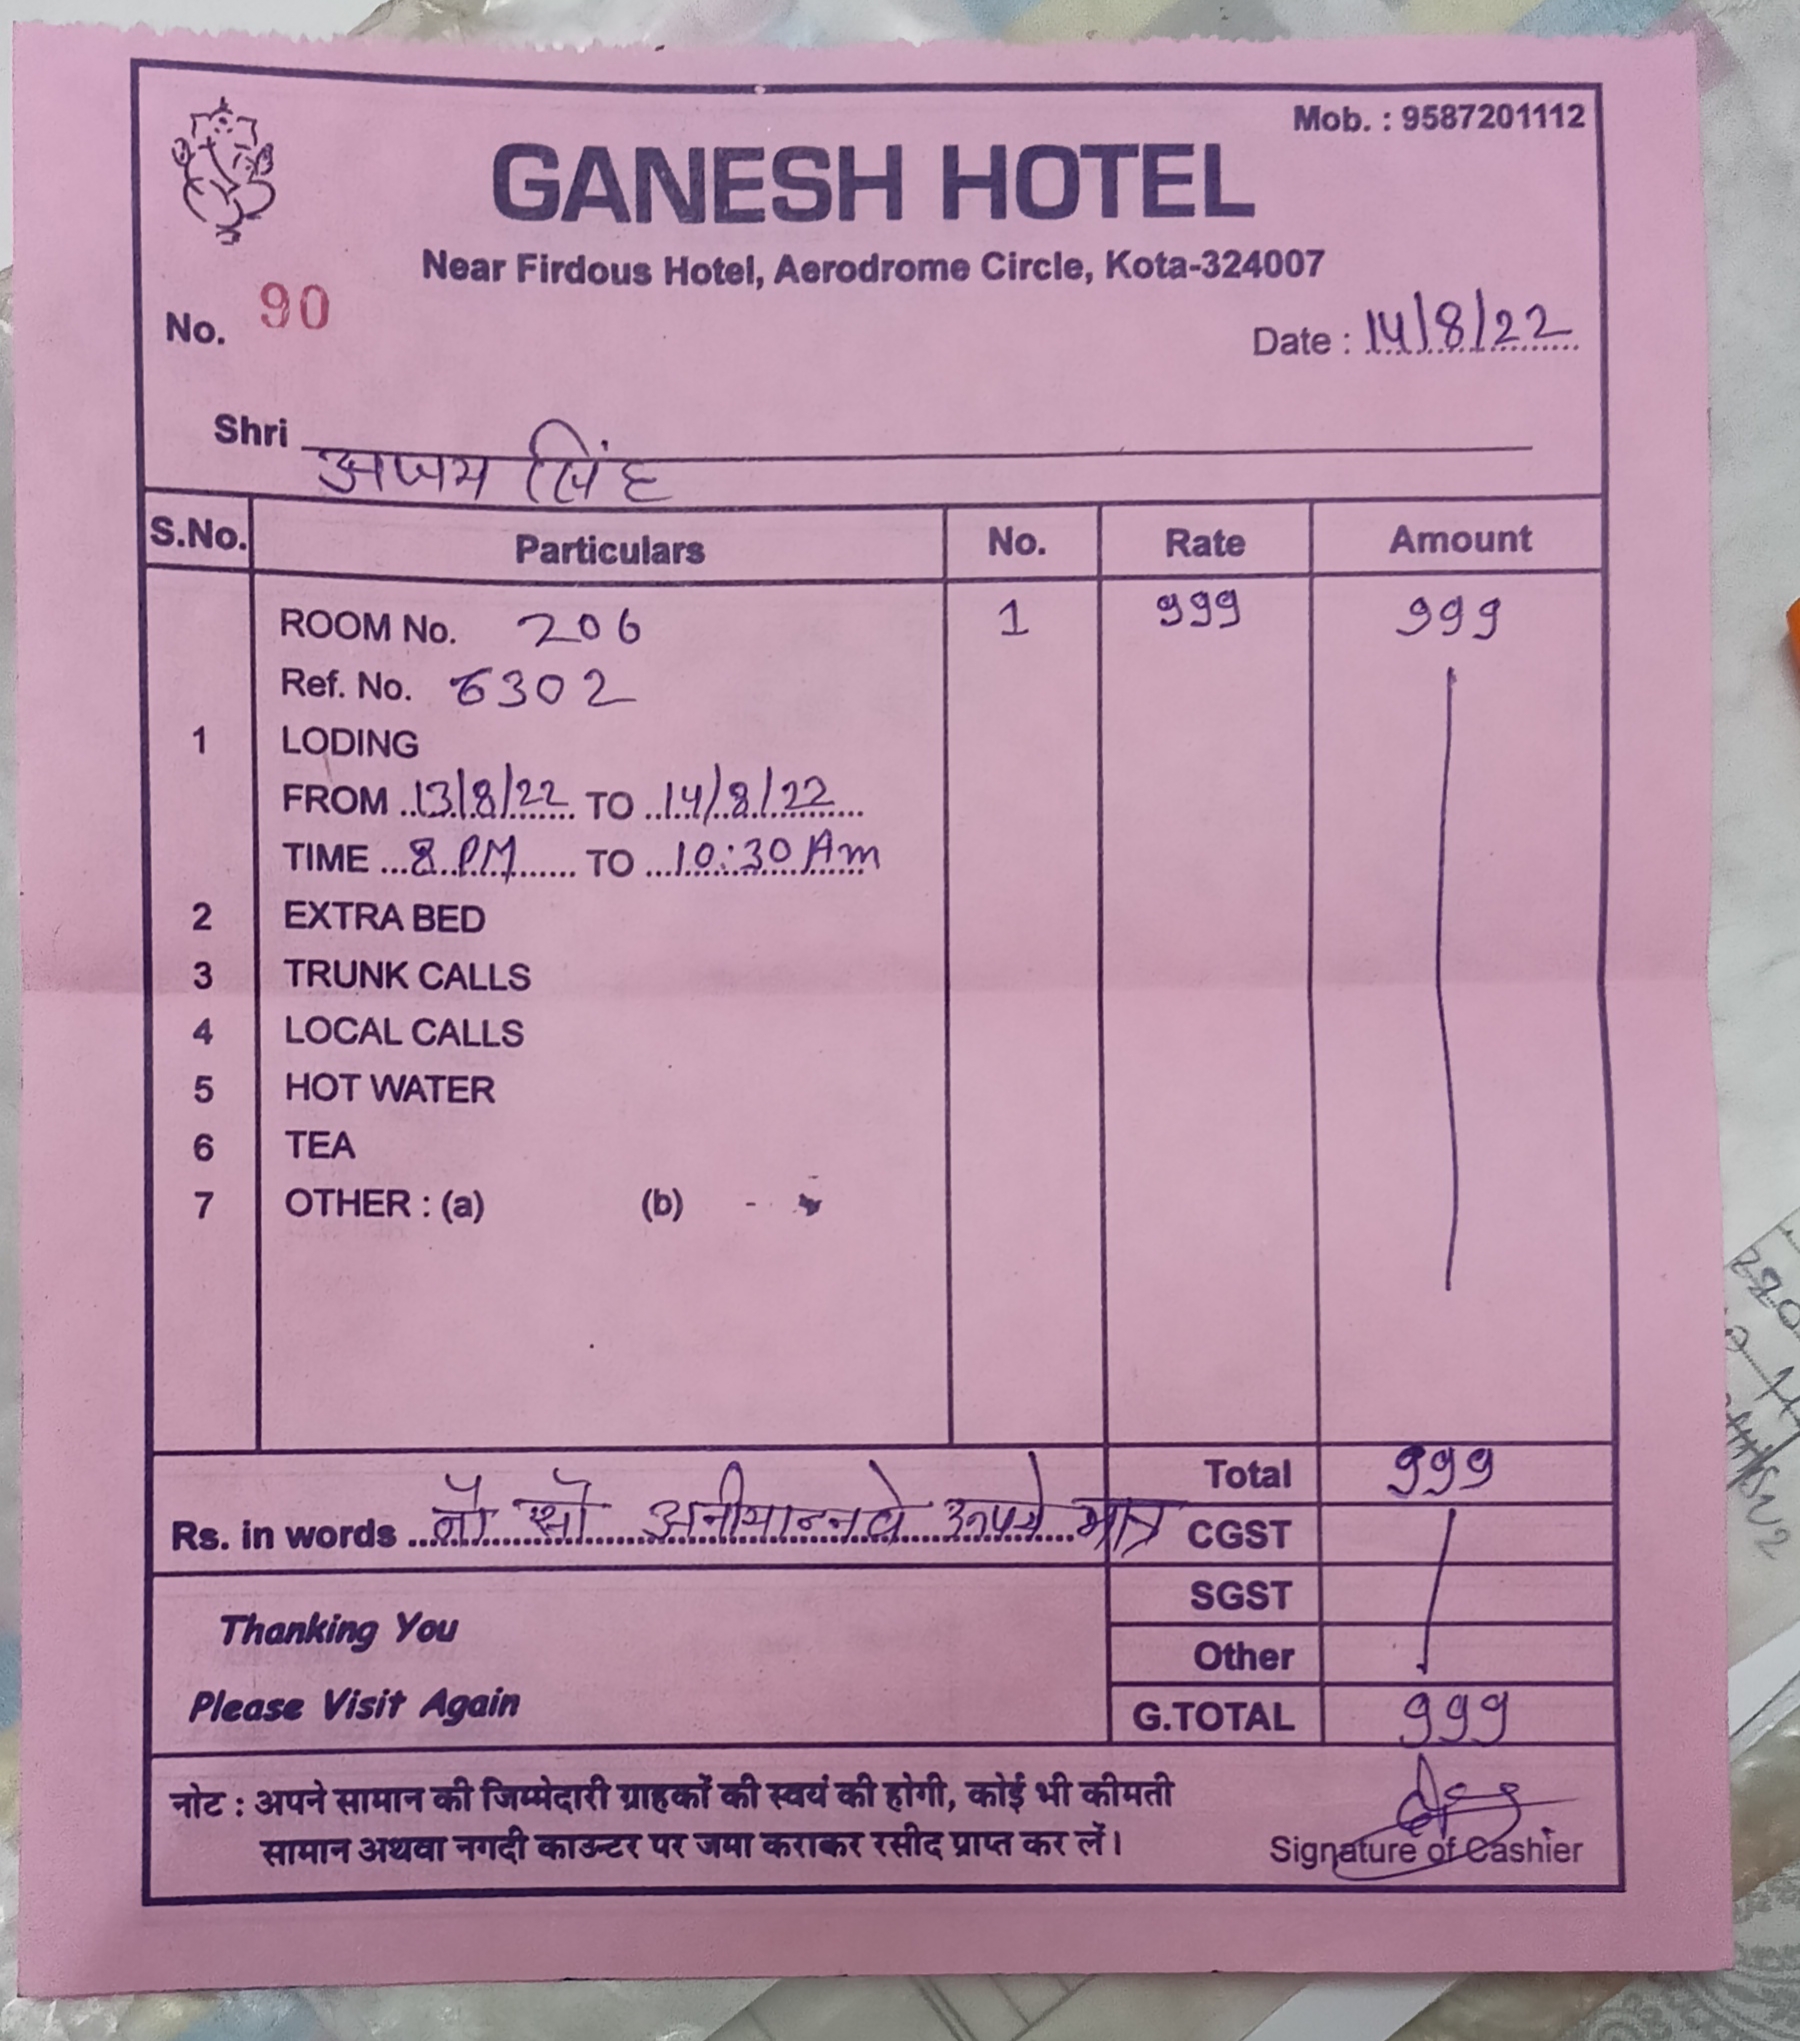 Mob. : 9587201112
GANESH HOTEL
Near Firdous Hotel, Aerodrome Circle, Kota-324007
No. 90
Date : 14/8/22
Shri अजय सिंह
S.No. Particulars No. Rate Amount
ROOM No. 206 1 999 999
Ref. No. 6302
1 LODING
FROM 13/8/22 TO 14/8/22
TIME 8 PM TO 10:30 Am
2 EXTRA BED
3 TRUNK CALLS
4 LOCAL CALLS
5 HOT WATER
6 TEA
7 OTHER : (a) (b)
Total 999
Rs. in words नौ सौ अनीयान्नवे रूपये मात्र
CGST
SGST
Other
G.TOTAL 999
Thanking You
Please Visit Again
नोट : अपने सामान की जिम्मेदारी ग्राहकों की स्वयं की होगी, कोई भी कीमती
सामान अथवा नगदी काउन्टर पर जमा कराकर रसीद प्राप्त कर लें।
Signature of Cashier